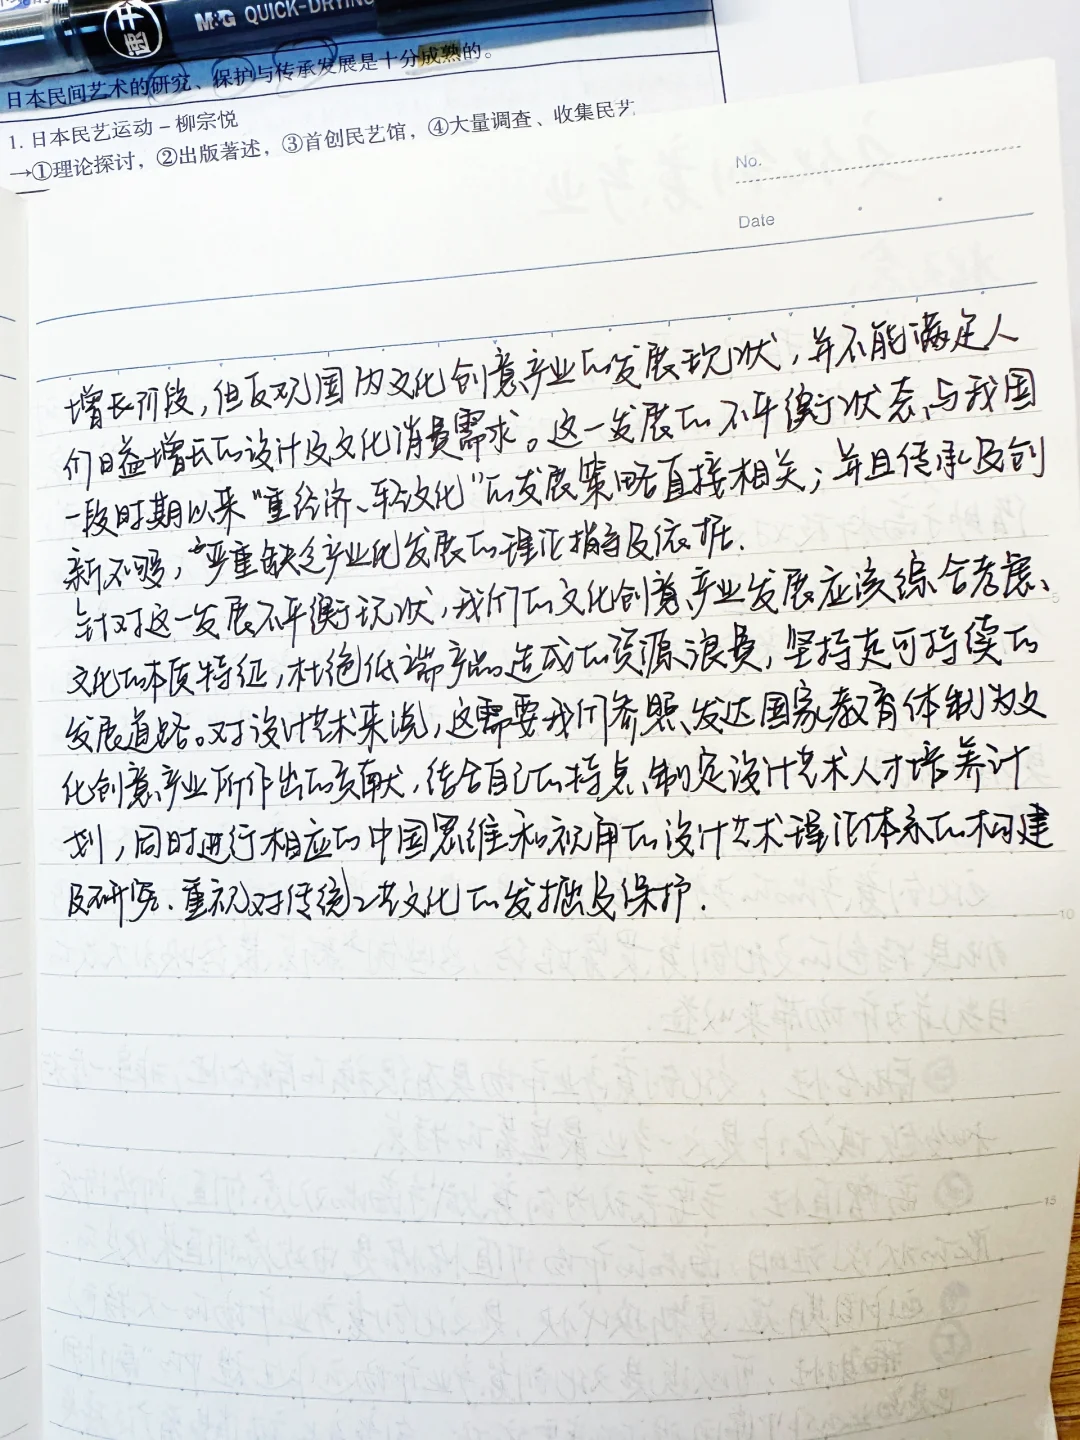 速干
M&G QUICK-DRYING
日本民间艺术的研究、保护与传承发展是十分成熟的。
1. 日本民艺运动－柳宗悦
→①理论探讨，②出版著述，③首创民艺馆，④大量调查、收集民艺
No.
Date
增长阶段，但反观国内文化创意产业的发展现状，并不能满足人
们日益增长的设计及文化消费需求。这一发展的不平衡状态与我国
一段时期以来“重经济、轻文化”的发展策略直接相关；并且传承及创
新不够，严重缺乏产业化发展的理论指导及依据.
针对这一发展不平衡现状，我们的文化创意产业发展应该综合考虑、
文化的本质特征，杜绝低端产品造成的资源浪费，坚持走可持续的
发展道路。对设计艺术来说，这需要我们参照发达国家教育体制为文
化创意产业所作出的贡献，结合自己的特点、制定设计艺术人才培养计
划，同时进行相应的中国思维和视角的设计艺术理论体系的构建
及研究.重视对传统工艺文化的发掘及保护.
5
10
15